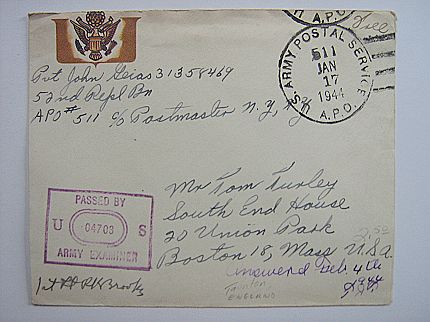 A.P.O.
Free
U.S. ARMY POSTAL SERVICE
511
JAN
17
1944
A.P.O.
Pvt John Geias 31358469
52nd Repl Bn
APO # 511 c/o Postmaster N.Y, N.Y.
Mr Tom Turley
South End House
20 Union Park
Boston 18, Mass U.S.A.
PASSED BY
U 04703 S
ARMY EXAMINER
Answered Feb. 4th
1944
Taunton
ENGLAND
1st Lt